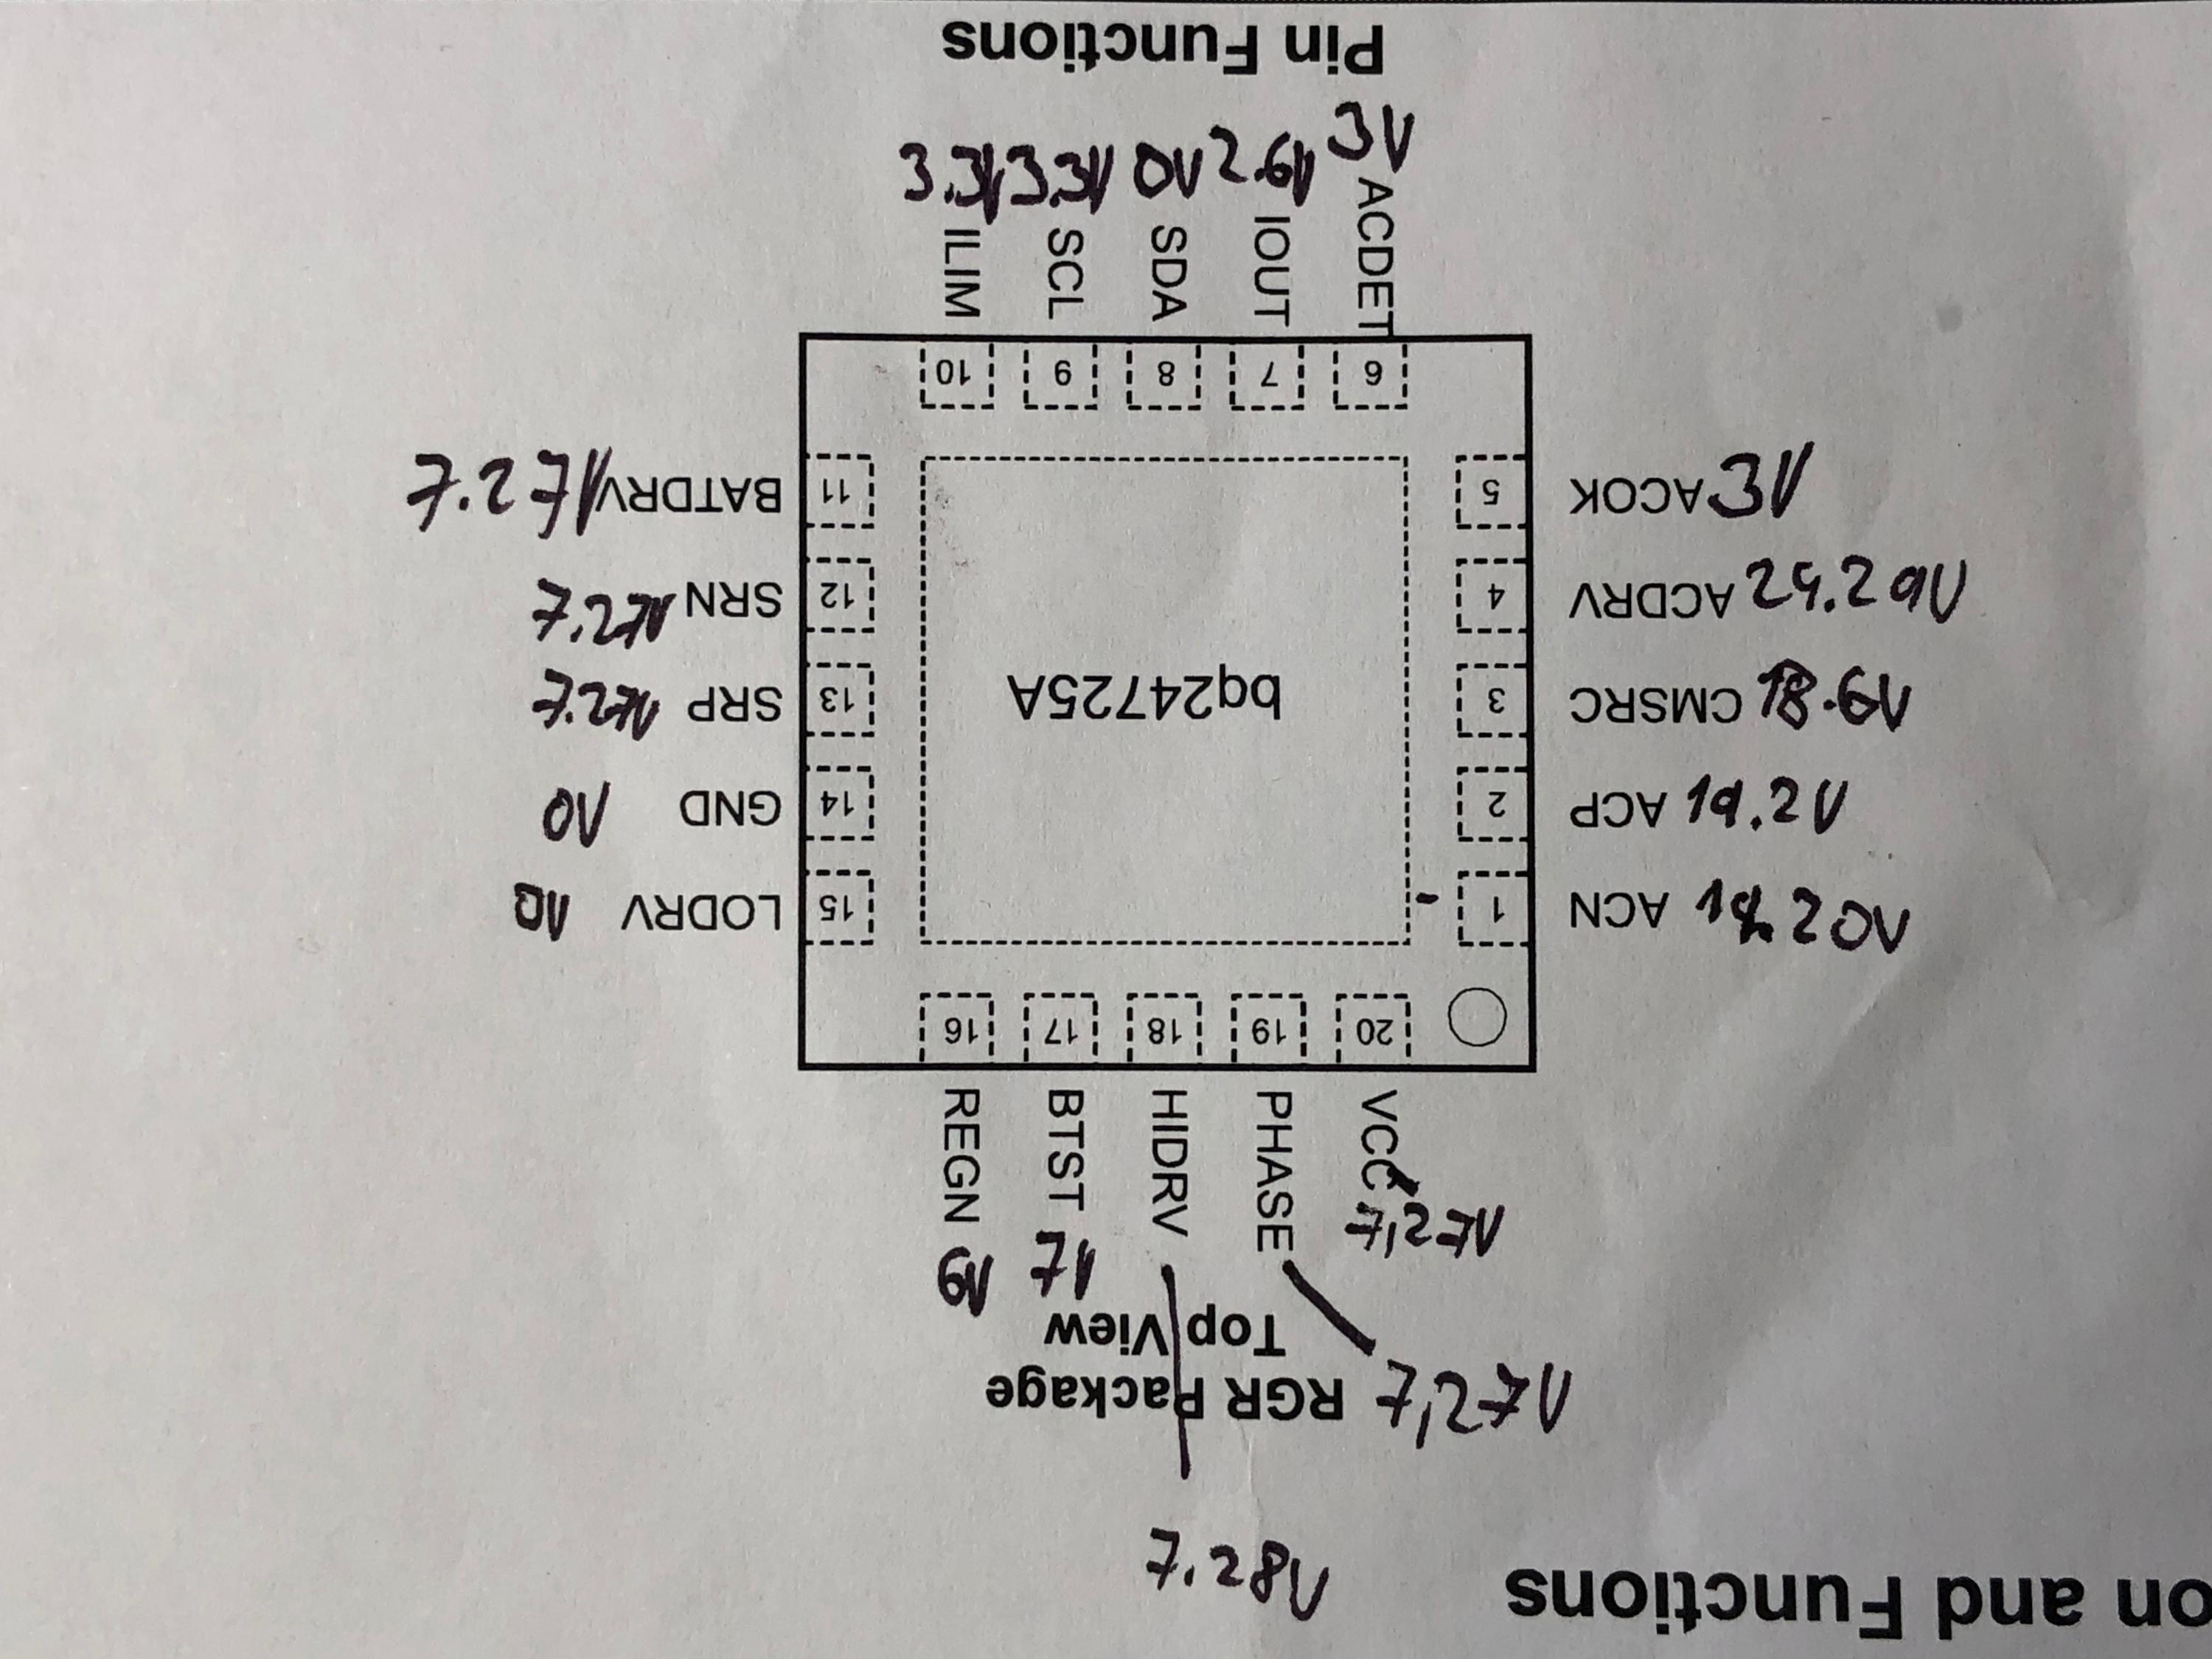 Pin Functions
3.3V 3.3V 0V 2.6V 3V
ILIM SCL SDA IOUT ACDET
10 9 8 7 6
7.27V BATDRV 11 5 ACOK 3V
7.27V SRN 12 4 ACDRV 24.29V
7.27V SRP 13 bq24725A 3 CMSRC 18.6V
0V GND 14 2 ACP 19.2V
0V LODRV 15 1 ACN 19.20V
16 17 18 19 20
REGN BTST HIDRV PHASE VCC
6V 7V 7,27V
Top View
RGR Package 7,27V
7.28V
on and Functions